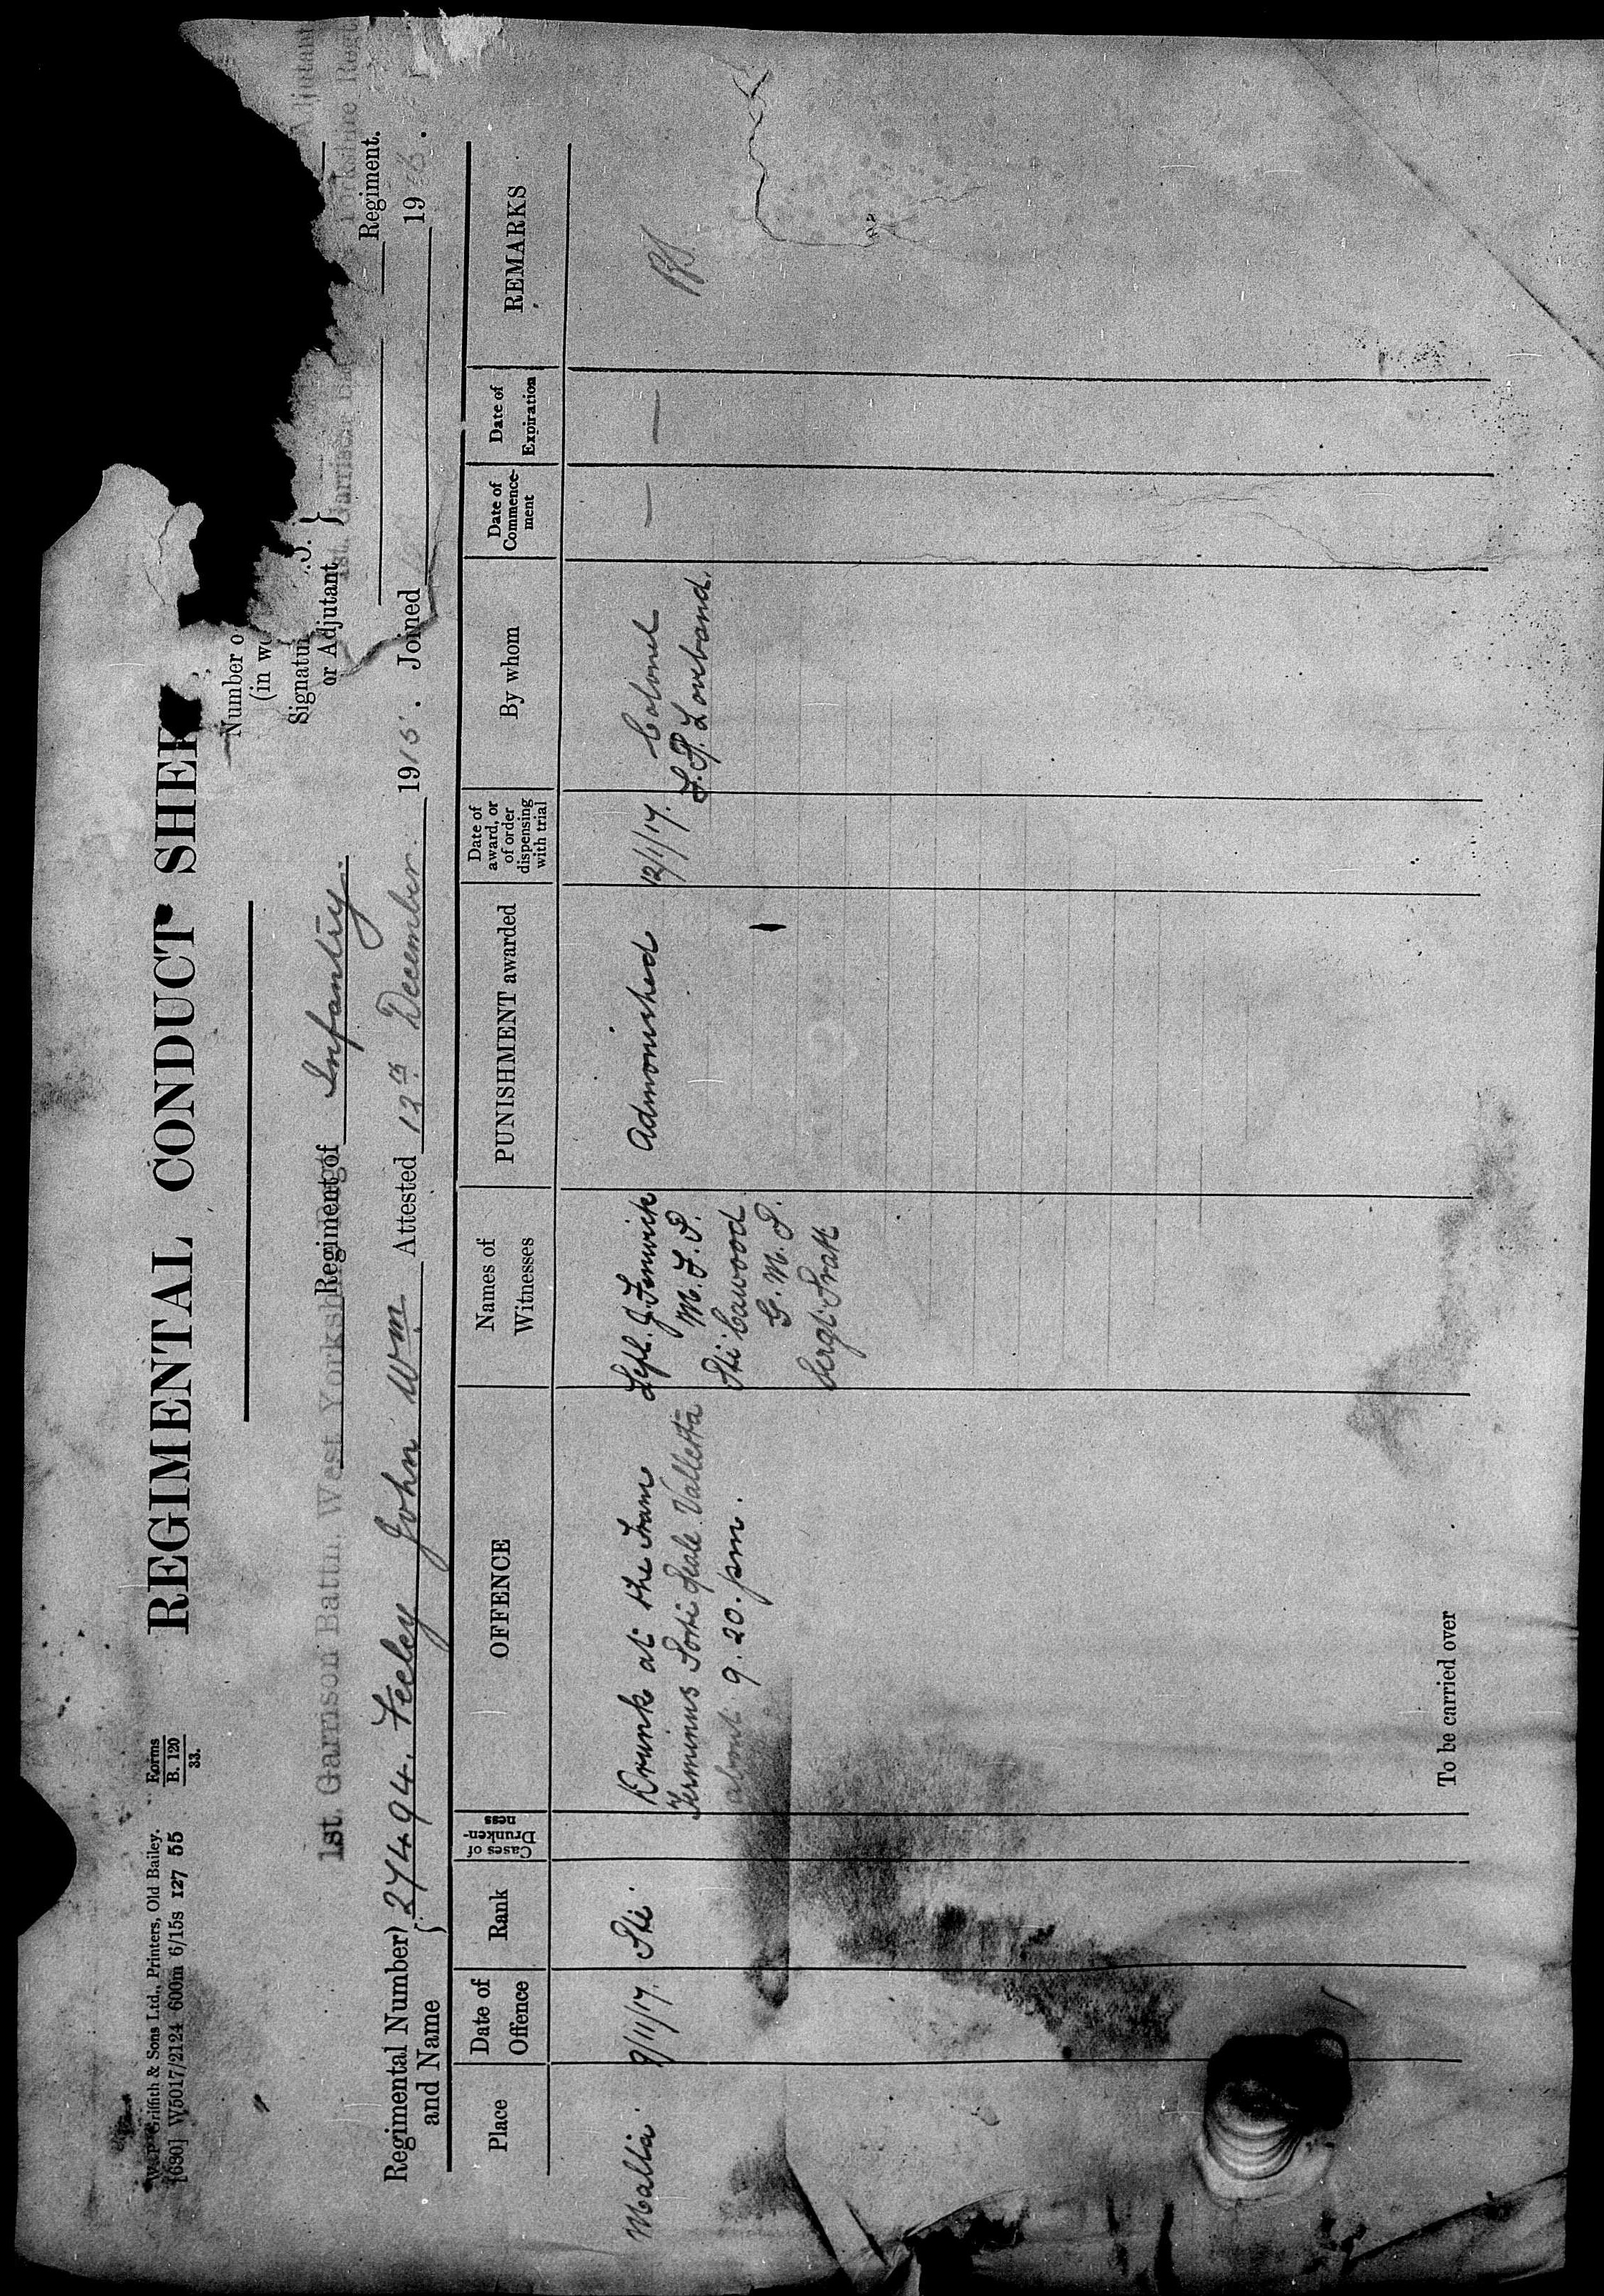 W & P Griffith & Sons Ltd., Printers, Old Bailey.
[630] W5017/2124 600m 6/15s 127 55
Forms
B. 120
33.
REGIMENTAL CONDUCT SHE
Number o
(in wo
Signatur
or Adjutant
Adjutant
1st. Garrison Battn. West Yorkshire Regt
Regiment of Infantry.
1st. Garrison Yorkshire Regt
Regimental Number and Name } 27494. Feeley John Wm Attested 12th December. 1915. Joined 19 . Regiment.
Place
Date of Offence
Rank
Cases of Drunken-ness
OFFENCE
Names of Witnesses
PUNISHMENT awarded
Date of award, or of order dispensing with trial
By whom
Date of Commence-ment
Date of Expiration
REMARKS
Malta 9/1/17. Pte. Drunk at the Tram J. Fenwick Admonished 12/1/17. Colonel — —
Terminus Porte Reale Valletta M. F. P. F. R. Loveband.
about 9.20. pm. Pte Cawood
G. M. P.
Sergt. Pratt
To be carried over